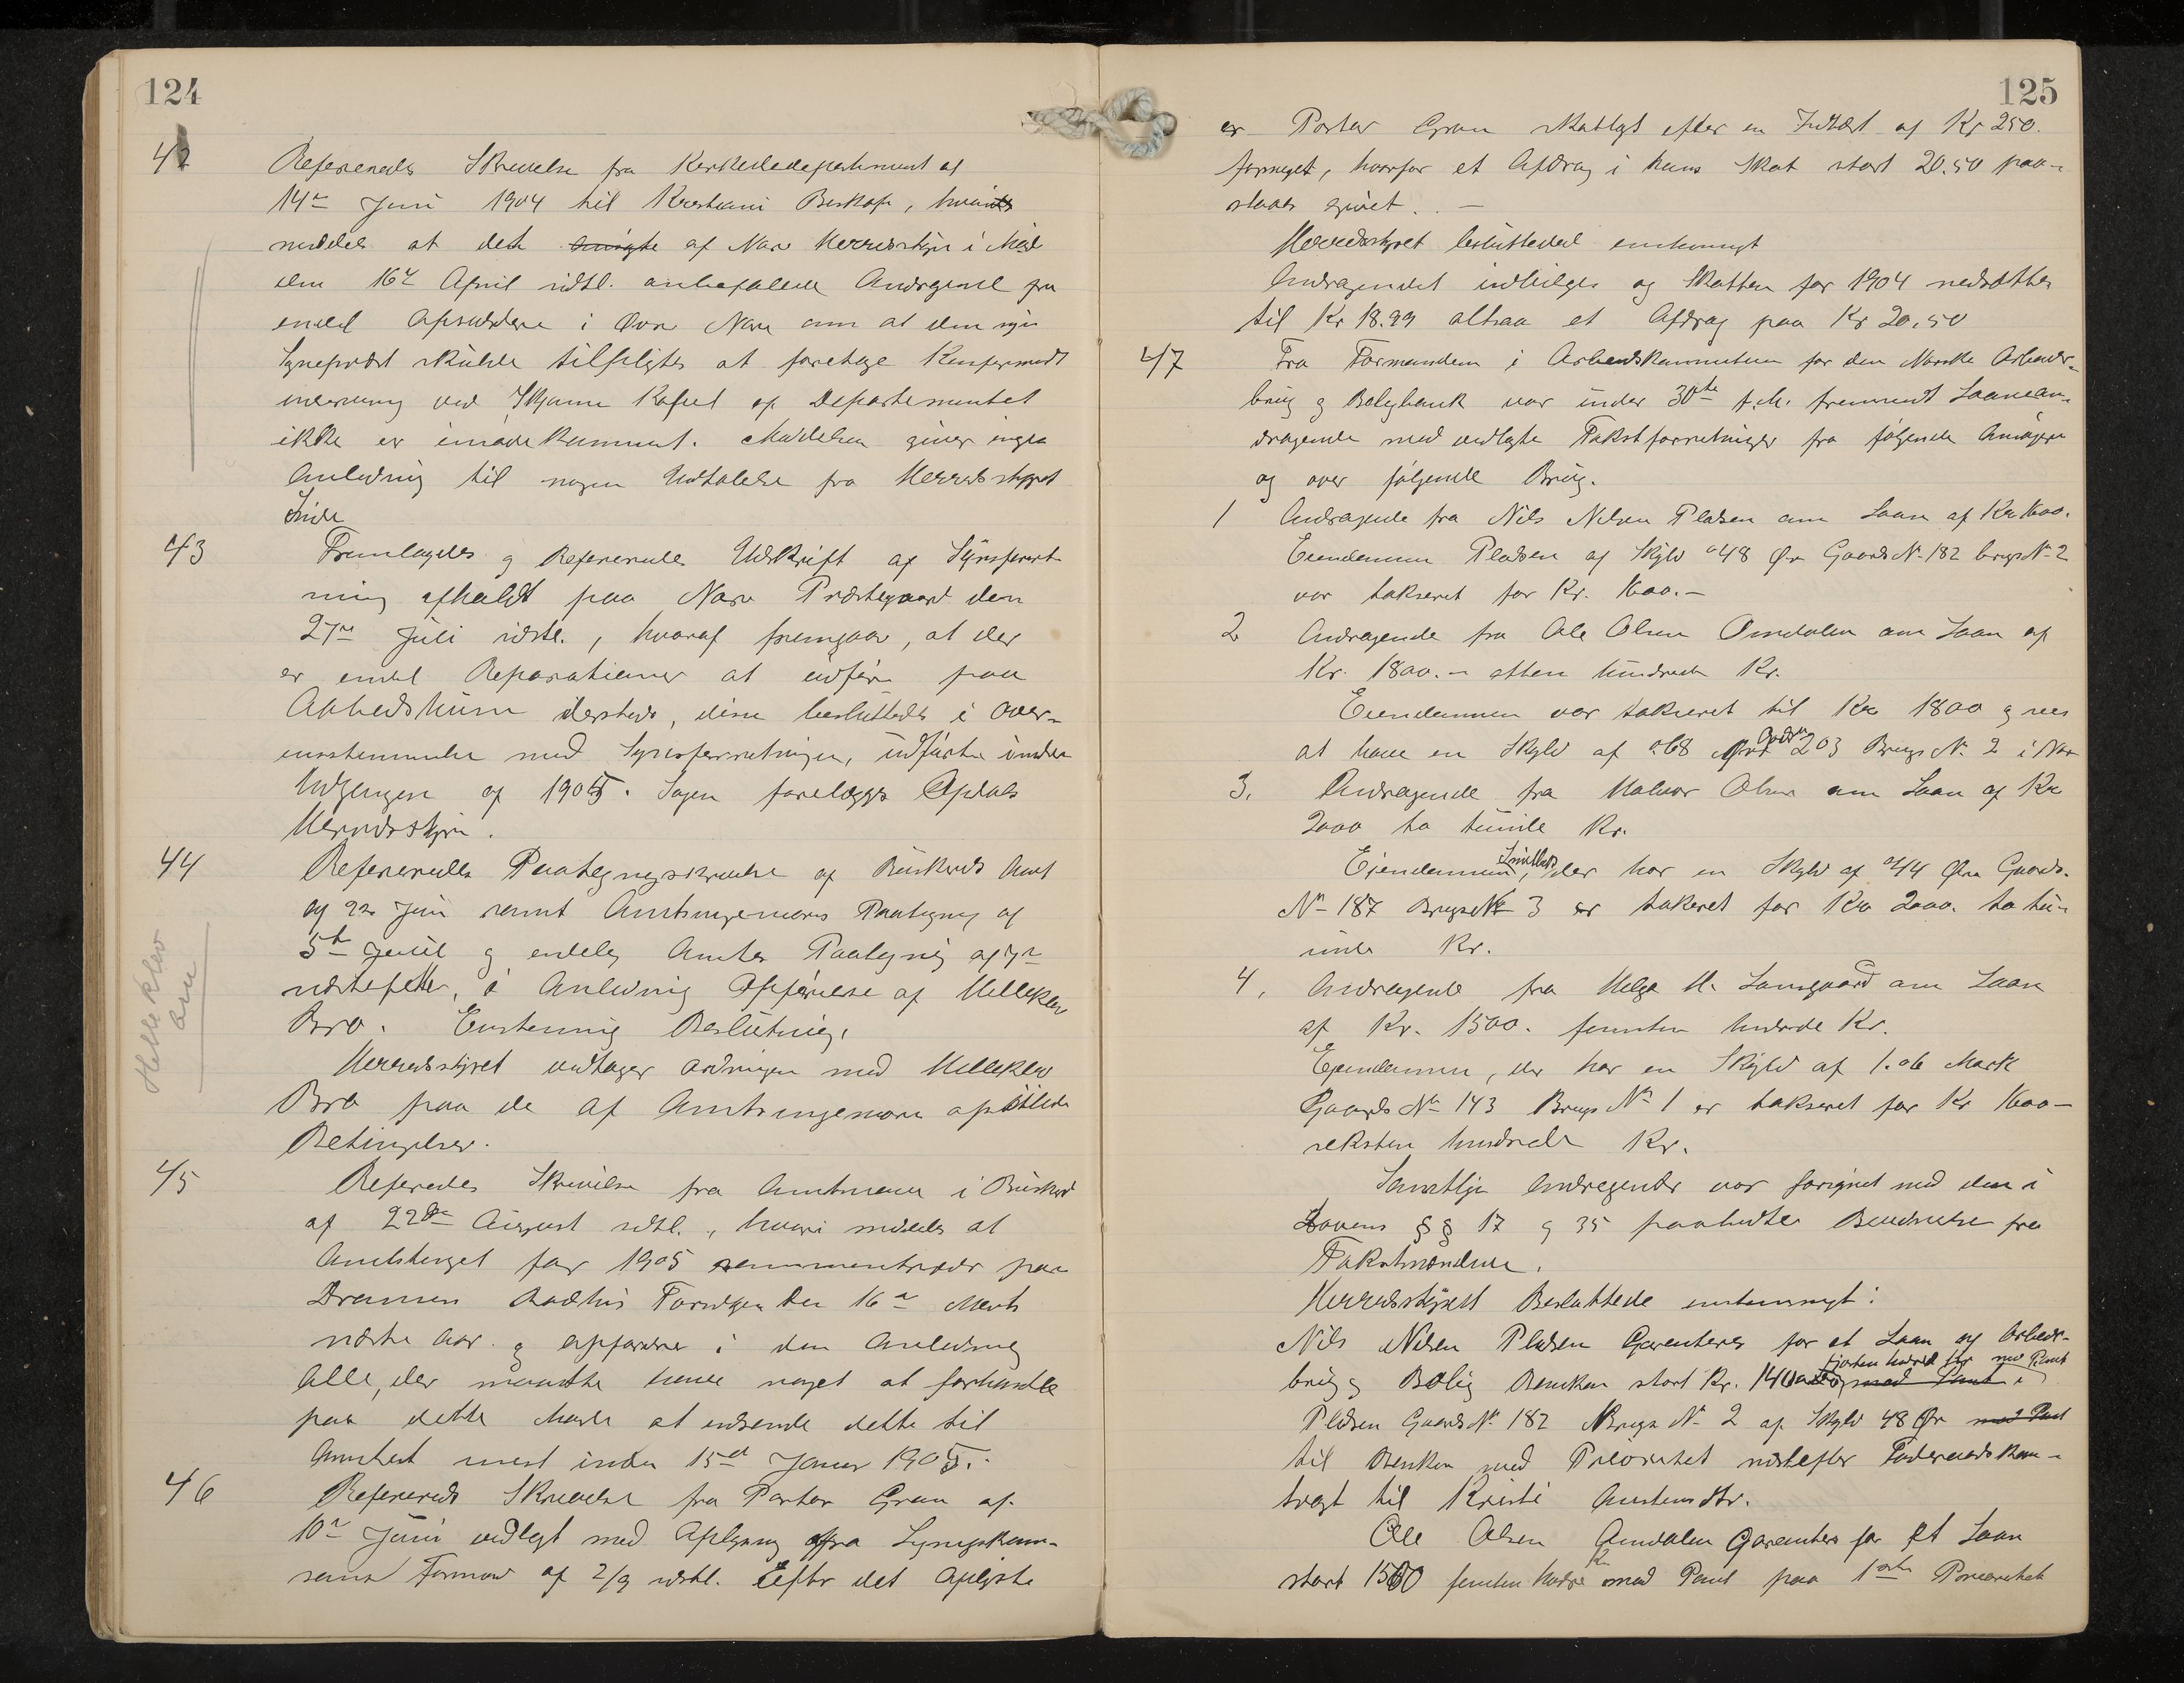 124
42 Refereredes Skrivelse fra Kirkedepartement af
14de Juni 1904 til Kristiani Biskop, hvori
meddeles at det af Nore Herredsstyre i Møde
den 16de April sidstl. anbefalede Andragende fra
endel Opsiddere i Øvre Nore om at den nye
Sogneprest skulde tilpligtes at foretage Konfirmant
ved Skjønne Kapel af Departementet
ikke er imødekommet. Meddelelsen giver ingen
Anledning til nogen Udtalelse fra Herredsstyret
Side
43 Fremlagdes og Refereredes Udskrift af Synsforret-
ning afholdt paa Nore Prestegaard den
27de Juli sidstl., hvoraf fremgaar, at der
er endel Reparationer at udføre paa
Aabodshusene dersteds, disse besluttedes i Over-
ensstemmelse med Synsforretningen, udførte inden
Udgangen af 1905. Sagen forelægges Opdals
Herredsstyre.
44 Refereredes Paategningsskrivelse af Buskeruds Amt
af 22 Juni samt Amtsingeniørens Paategning af
5te Juli og endelig Amtets Paategning af 7de
næstefter, i Anledning Opførelse af Helleklev
Bro. Enstemmig Beslutning.
Helleklev
bru
Herredsstyret vedtager ordningen med Helleklev
Bro paa de af Amtsingeniøren opstillede
Betingelser.
45 Refereredes Skrivelse fra Amtmanden i Buskerud
af 22de August sidstl., hvori meddeles at
Amtstinget for 1905 sammentræder paa
Drammen Raadhus Torsdagen den 16de Marts
næste Aar og opfordrer i den Anledning
Alle, der maatte have noget at forhandle
paa dette Møde at indsende dette til
Amtet inden 15de Januar 1905.
46 Refereredes Skrivelse fra Pastor Gran af
10de Juni vedlagt med Oplysning fra Ligningskom-
sens Formand af 2/9 sidstl. Efter det Oplyste
125
er Pastor Gran skatlagt efter en Indtægt af Kr 250.
formeget, hvorfor et Afdrag i hans Skat stort 20.50 paa-
staaes givet. . —
Herredsstyret besluttede enstemmigt
Andragendet indvilges og Skatten for 1904 nedsættes
til Kr 18.99 altsaa et Afdrag paa Kr 20.50
47 Fra Formanden i Arbeidskommiteen for den Norske Arbeider-
brug og Boligbank var under 30te f.M. fremsendt Laanean-
dragende med vedlagte Takstforretninger fra følgende Ansøgere
og over følgende Brug.
1 Andragende fra Nils Nilsen Pladsen om Laan af Kr 1600.
Eiendommen Pladsen af Skyld 048 Øre Gaards No 182 brugs No 2
var takseret for Kr. 1600.—
2 Andragende fra Ole Olsen Omdalen om Laan af
Kr. 1800.— atten hundrede Kr.
Eiendommen var takseret til Kr 1800 og sees
at have en Skyld af 0.68 Øre Gaards 203 Brugs No 2 i Nore
3. Andragende fra Halvor Olsen om Laan af Kr
2000 to tusinde Kr.
Eiendommen, der har en Skyld af 044 Øre Gaards.
No 187 Brugs No 3 er takseret for Kr 2000. to tu-
sinde Kr.
4. Andragende fra Helge H. Lansgaard om Laan
af Kr. 1500. femten hundrede Kr.
Ejendommen, der har en Skyld af 1.06 Mark
Gaards No 143 Brugs No 1 er takseret for Kr 1600—
seksten hundrede Kr.
Samtlige Andragender var forsynet med den i
Lovens §§ 17 og 35 paabudte Bevidnelse fra
Takstmændene.
Herredsstyret Besluttede enstemmigt:
Nils Nilsen Pladsen Garanteres for et Laan af Arbeider-
brug og Bolig Banken stort Kr. 1400 fjorten hundrede Kr med Pant
med Pant i
Pladsen Gaards No 182 Brugs No 2 af Skyld 48 Øre med Pant
til Banken med Prioritet næstefter Føderaadskon-
tragt til Kristi Austensdtr.
Ole Olsen Omdalen Garanteres for et Laan
stort 1500 femten hundre Kr med Pant paa 1ste Prioritet